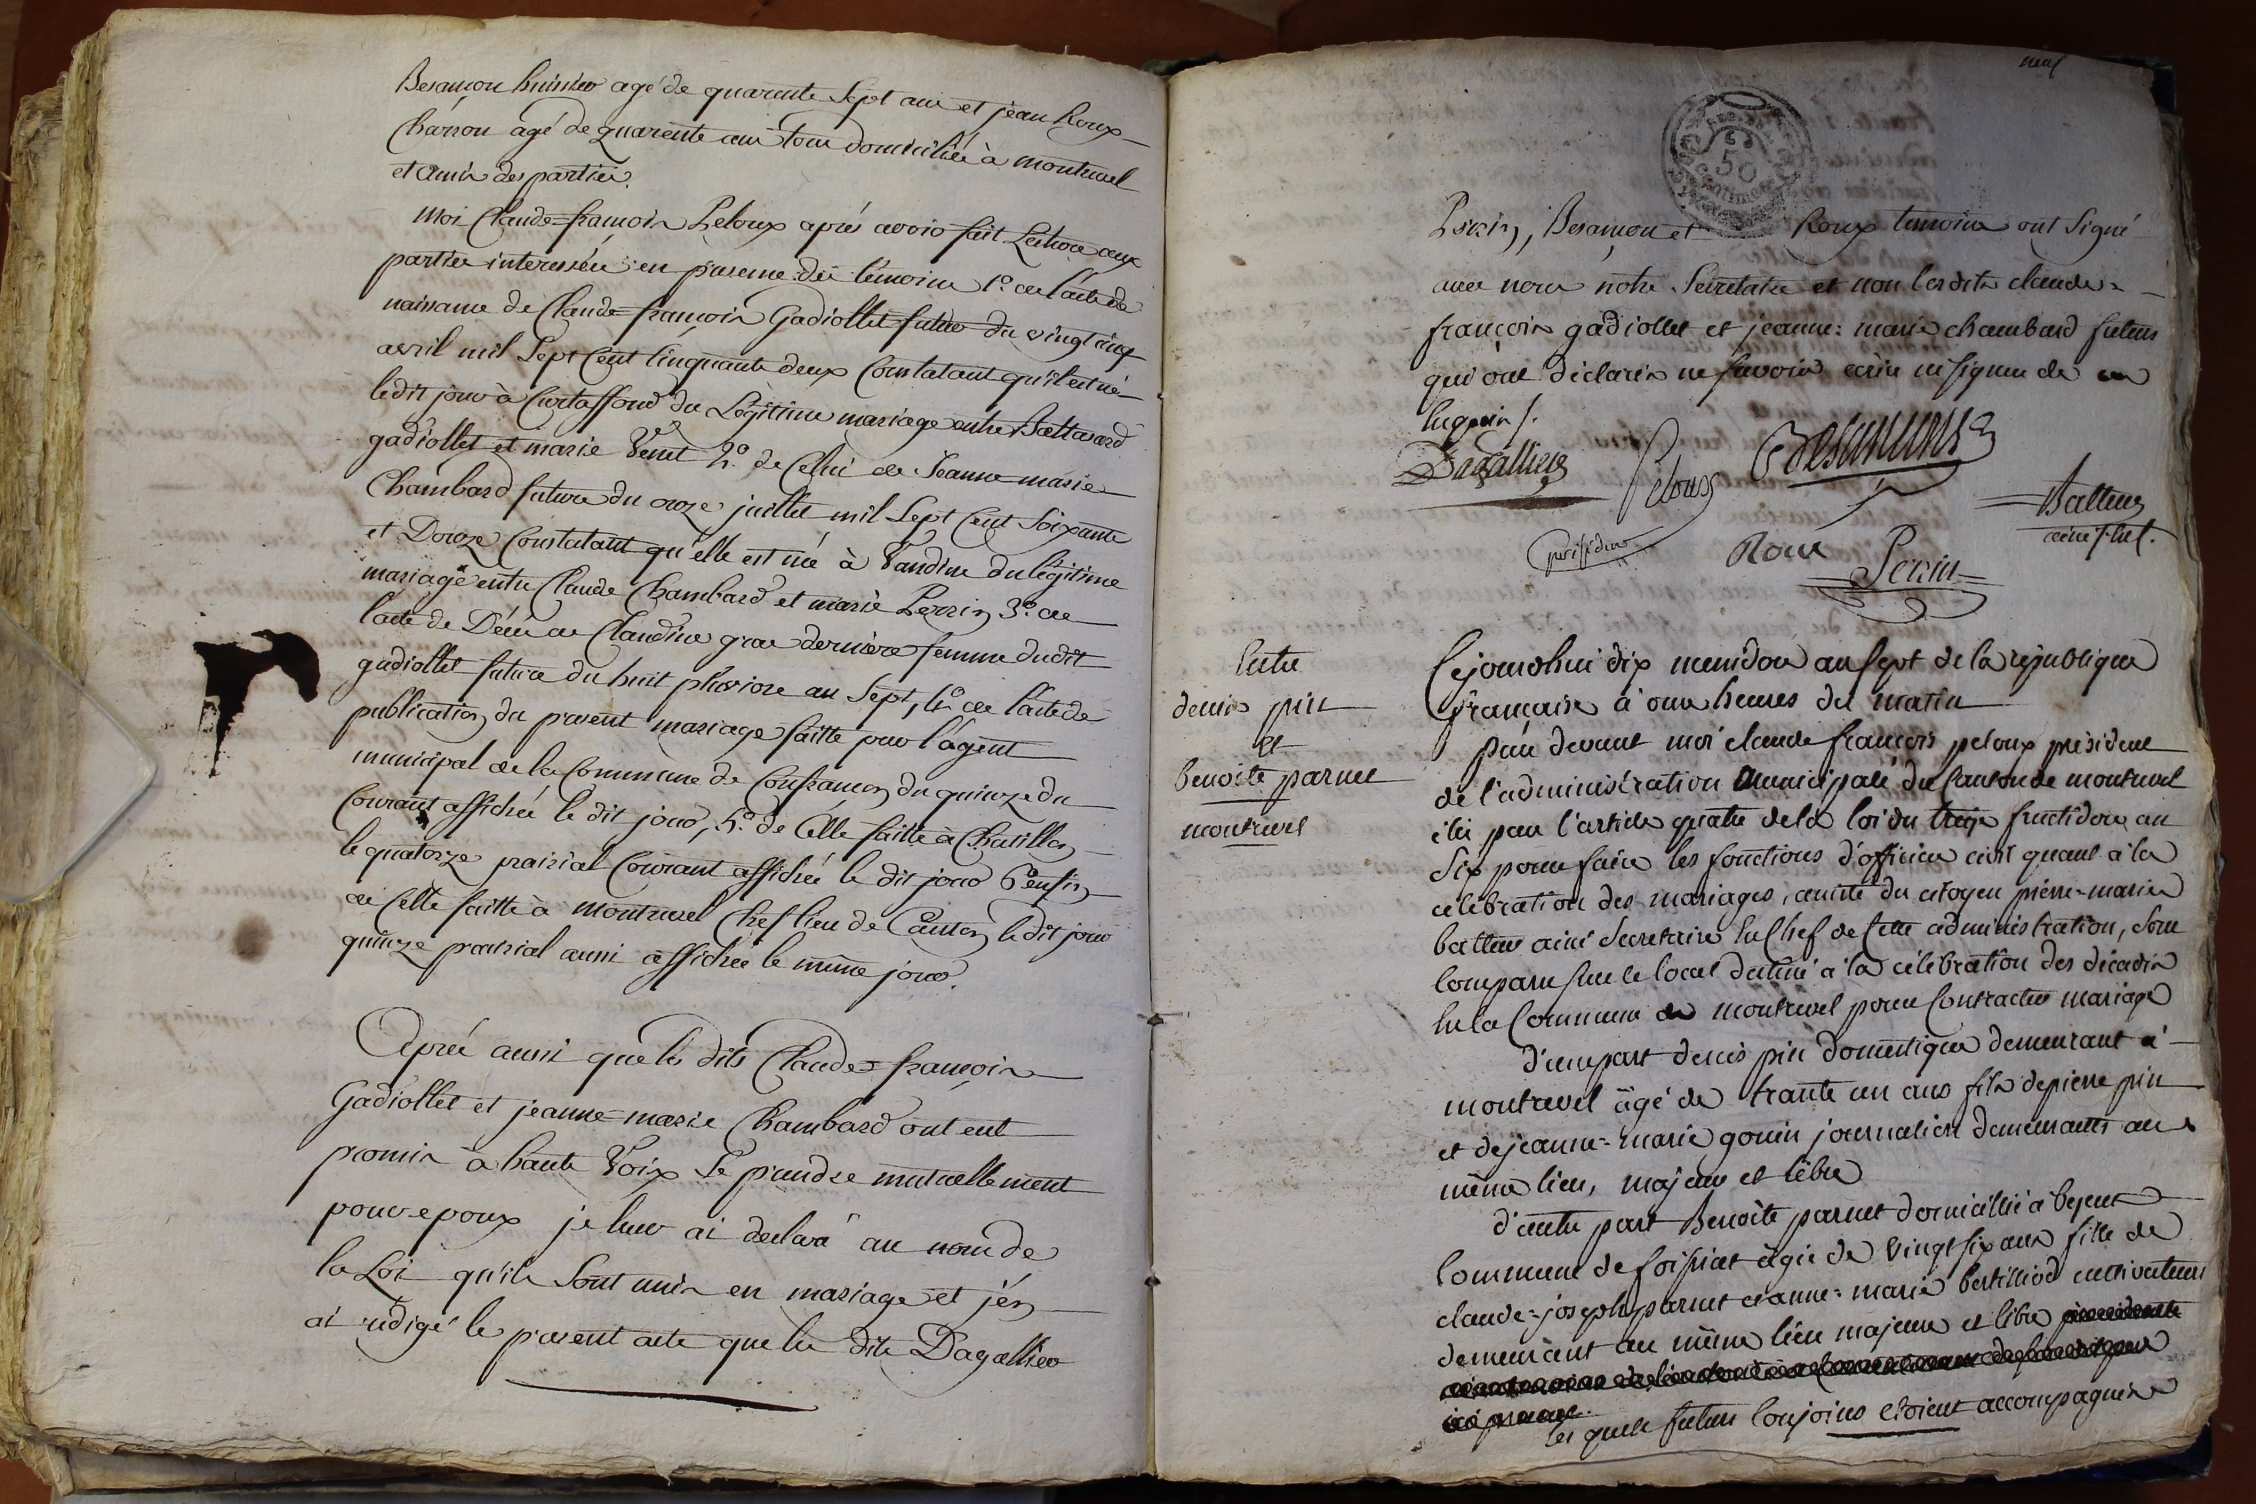 Besançon huissier agé de quarente Sept ans et jean Roux
Charron agé de quarente ans tous domiciliés à montrevel
et amis des parties.
Moi Claude=françois Peloux aprés avoir fait Lecture aux
parties interessées en presence des témoins 1.° de l'acte de
naissance de Claude=françois Gadiollet futur du vingt cinq
avril mil Sept Cent Cinquante deux Constatant qu'il est né
le dit jour à Curtaffond du Légitime mariage entre Baltazard
gadiollet et marie Venet 2.° de Celui de Jeanne marie
Chambard future du onze juillet mil Sept Cent Soixante
et Douze Constatant qu'elle est né à Vandins du légitime
mariage entre Claude Chambard et marie Perrin 3.° de
l'acte de Décé de Claudine gras derniere femme dudit
gadiollet future du huit pluviose an Sept, 4.° de l'acte de
publication du present mariage faitte par l'agent
municipal de la Commune de Confrançon du quinze du
Courant affichée le dit jour, 5.° de Celle faitte à Chatillon
le quatorze prairial Courant affichée le dit jour 6.° enfin
de Celle faitte à montrevel Chef lieu de Canton le dit jour
quinze prairial aussi affichée le même jour.
Aprés aussi que les dits Claude=françois
Gadiollet et jeanne=marie Chambard ont eut
promis à haute Voix Se prendre mutuellement
pour epoux je leur ai declaré au nom de
la Loi qu'ils Sont unis en mariage et j'en
ai redigé le present acte que les dits Dagallier
neuf
50
Centimes
Perrin, Besançon et Roux temoins ont Signé
avec nous notre Secretaire et non les dits claude=
françois gadiollet et jeanne=marie chambard futurs
qui ont déclarés ne Savoir ecrire ni signer de ce
requis /.
Dagallier Peloux Besançon
president
Roux Perrin
Balleur
ainé S. chef.
Entre
denis pin
et
benoite parnet
montrevel
Cejourdhui dix messidor an Sept de la republique
française à onze heures du matin
par devant moi claude françois peloux président
de l'administration municipale du Canton de montrevel
élu par l'article quatre de la loi du treize fructidor an
Six pour faire les fonctions d'officier civil quant à la
célébration des mariages, assisté du citoyen pierre=marie
balleur ainé Secretaire en Chef de Cette administration, Sont
Comparu Sur le local destiné à la célébration des décadis
En la Commune de montrevel pour Contracter mariage
d'une part denis pin domestique demeurant à
montrevel âgé de trante un ans fils de pierre pin
et de jeanne=marie gouin journaliers demeurants au
même lieu, majeur et libre
d'autre part Benoite parnet domiciliée à bejeut
Commune de foissiat agée de vingt six ans fille de
claude=joseph parnet et anne=marie bertilliod cultivateurs
demeurant au même lieu majeure et libre
les quels futurs Conjoins etoient accompagnés